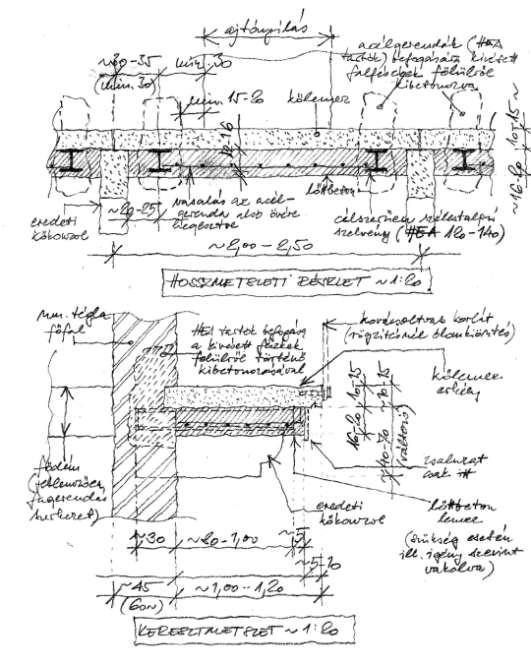 ajtónyílás
acélgerendák (HEA
tartók) befogására kivésett
falfészkek fölülről
kibetonozva
~30-35
(min. 30)
min. 30
min. 15-20
kőlemez
10-16
~16-20
10-15
vasalás az acél-
gerenda alsó övére
hegesztve
lőttbeton
eredeti
kőkonzol
~20-25
célszerűen szélestalpú
szelvény (HEA 120-140)
~2,00-2,50
HOSSZMETSZETI RÉSZLET ~1:20
min. tégla
főfal
HEA tartók befogása
a kivésett fészkek
fölülről történő
kibetonozásával
kovácsoltvas korlát
(rögzítésnél ólomkiöntés)
kőlemez
erkély
16-20
10-15
~10-15
(változó)
zsaluzat
csak itt
födém
(jellemzően
fagerendás
szerkezet)
eredeti
kőkonzol
lőttbeton
lemez
(szükség esetén
ill. igény szerint
vakolva)
~30
~5
~5-10
~45
(60~)
~1,00-1,20
KERESZTMETSZET ~1:20